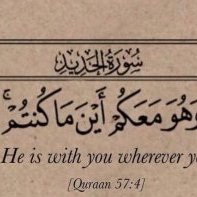 سُورَةُ الحَدِيدِ
وَهُوَ مَعَكُمْ أَيْنَ مَا كُنتُمْ ۚ
He is with you wherever y
[Quraan 57:4]